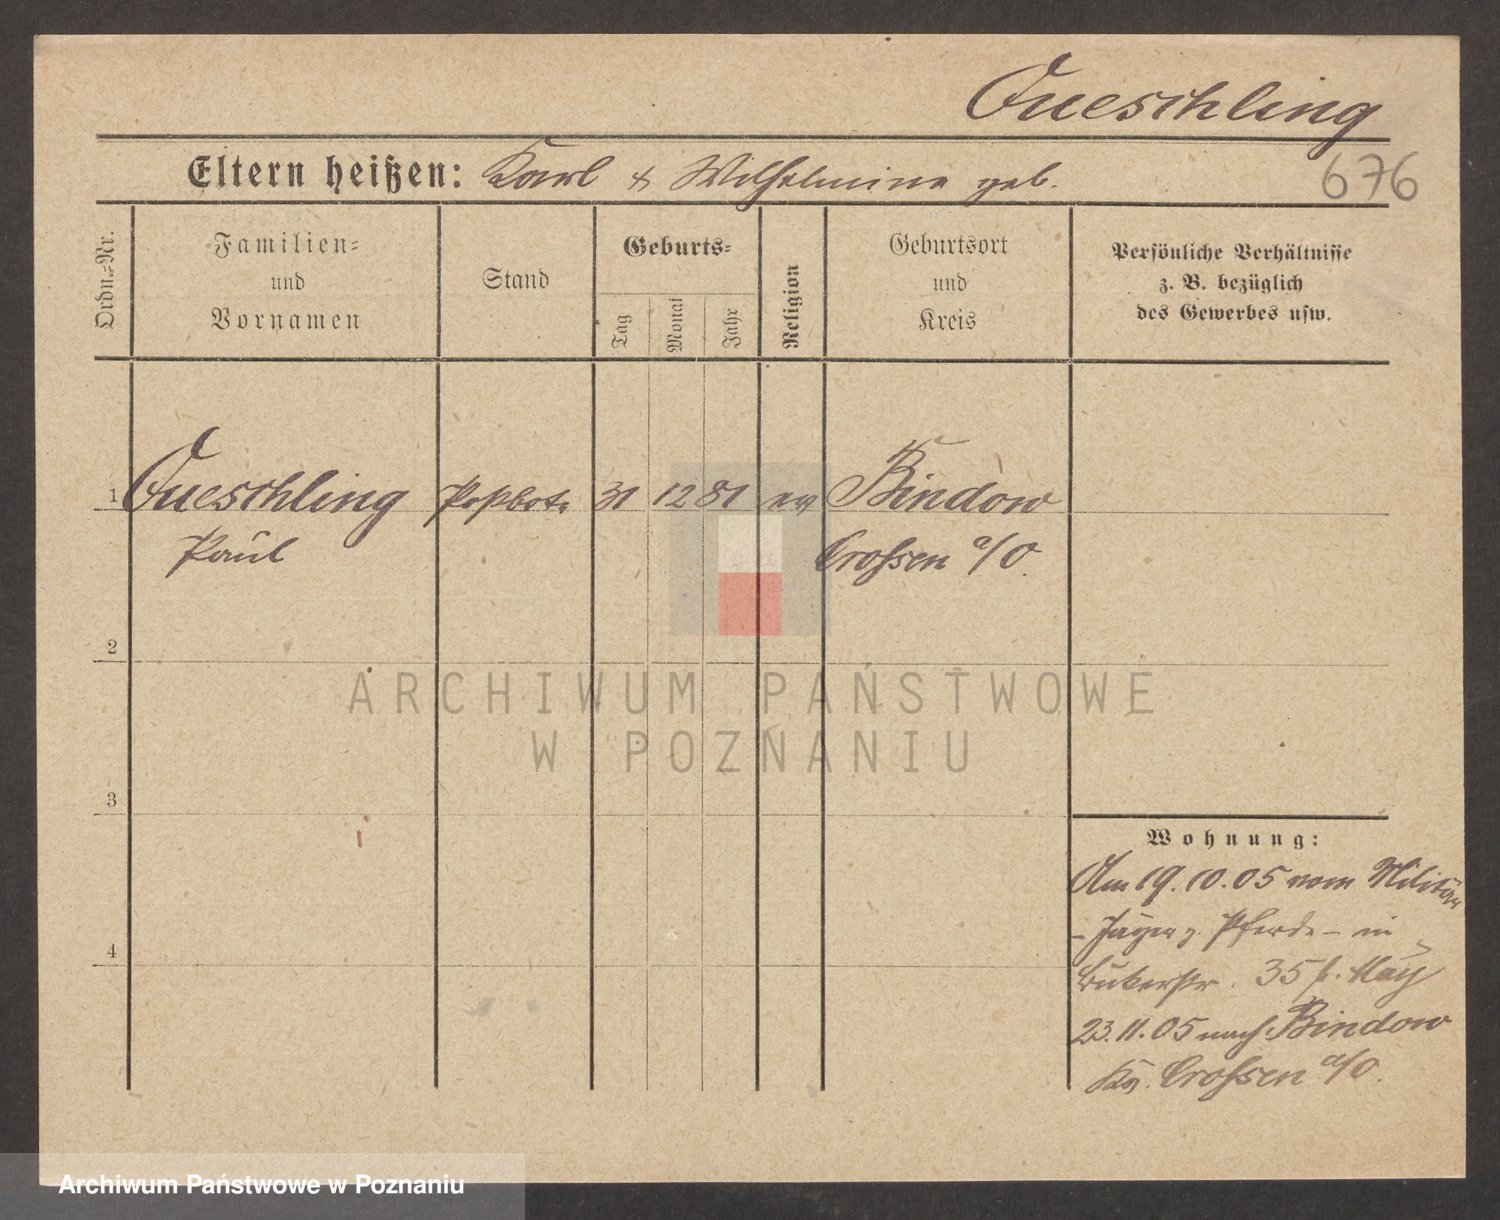 Queschling
Eltern heißen: Karl & Wilhelmine geb.
676
Ordn.-Nr.
Familien-
und
Vornamen
Stand
Geburts-
Tag
Monat
Jahr
Religion
Geburtsort
und
Kreis
Persönliche Verhältnisse
z. B. bezüglich
des Gewerbes usw.
1 Queschling Postbote 31 12 81 ev Bindow
Paul Crossen a/O.
2
ARCHIWUM PAŃSTWOWE
W POZNANIU
3
Wohnung:
Am 19.10.05 vom Militär
- Jäger z. Pferde - in
Bukerstr. 35
4
23.11.05 nach Bindow
Kr. Crossen a/O.
Archiwum Państwowe w Poznaniu